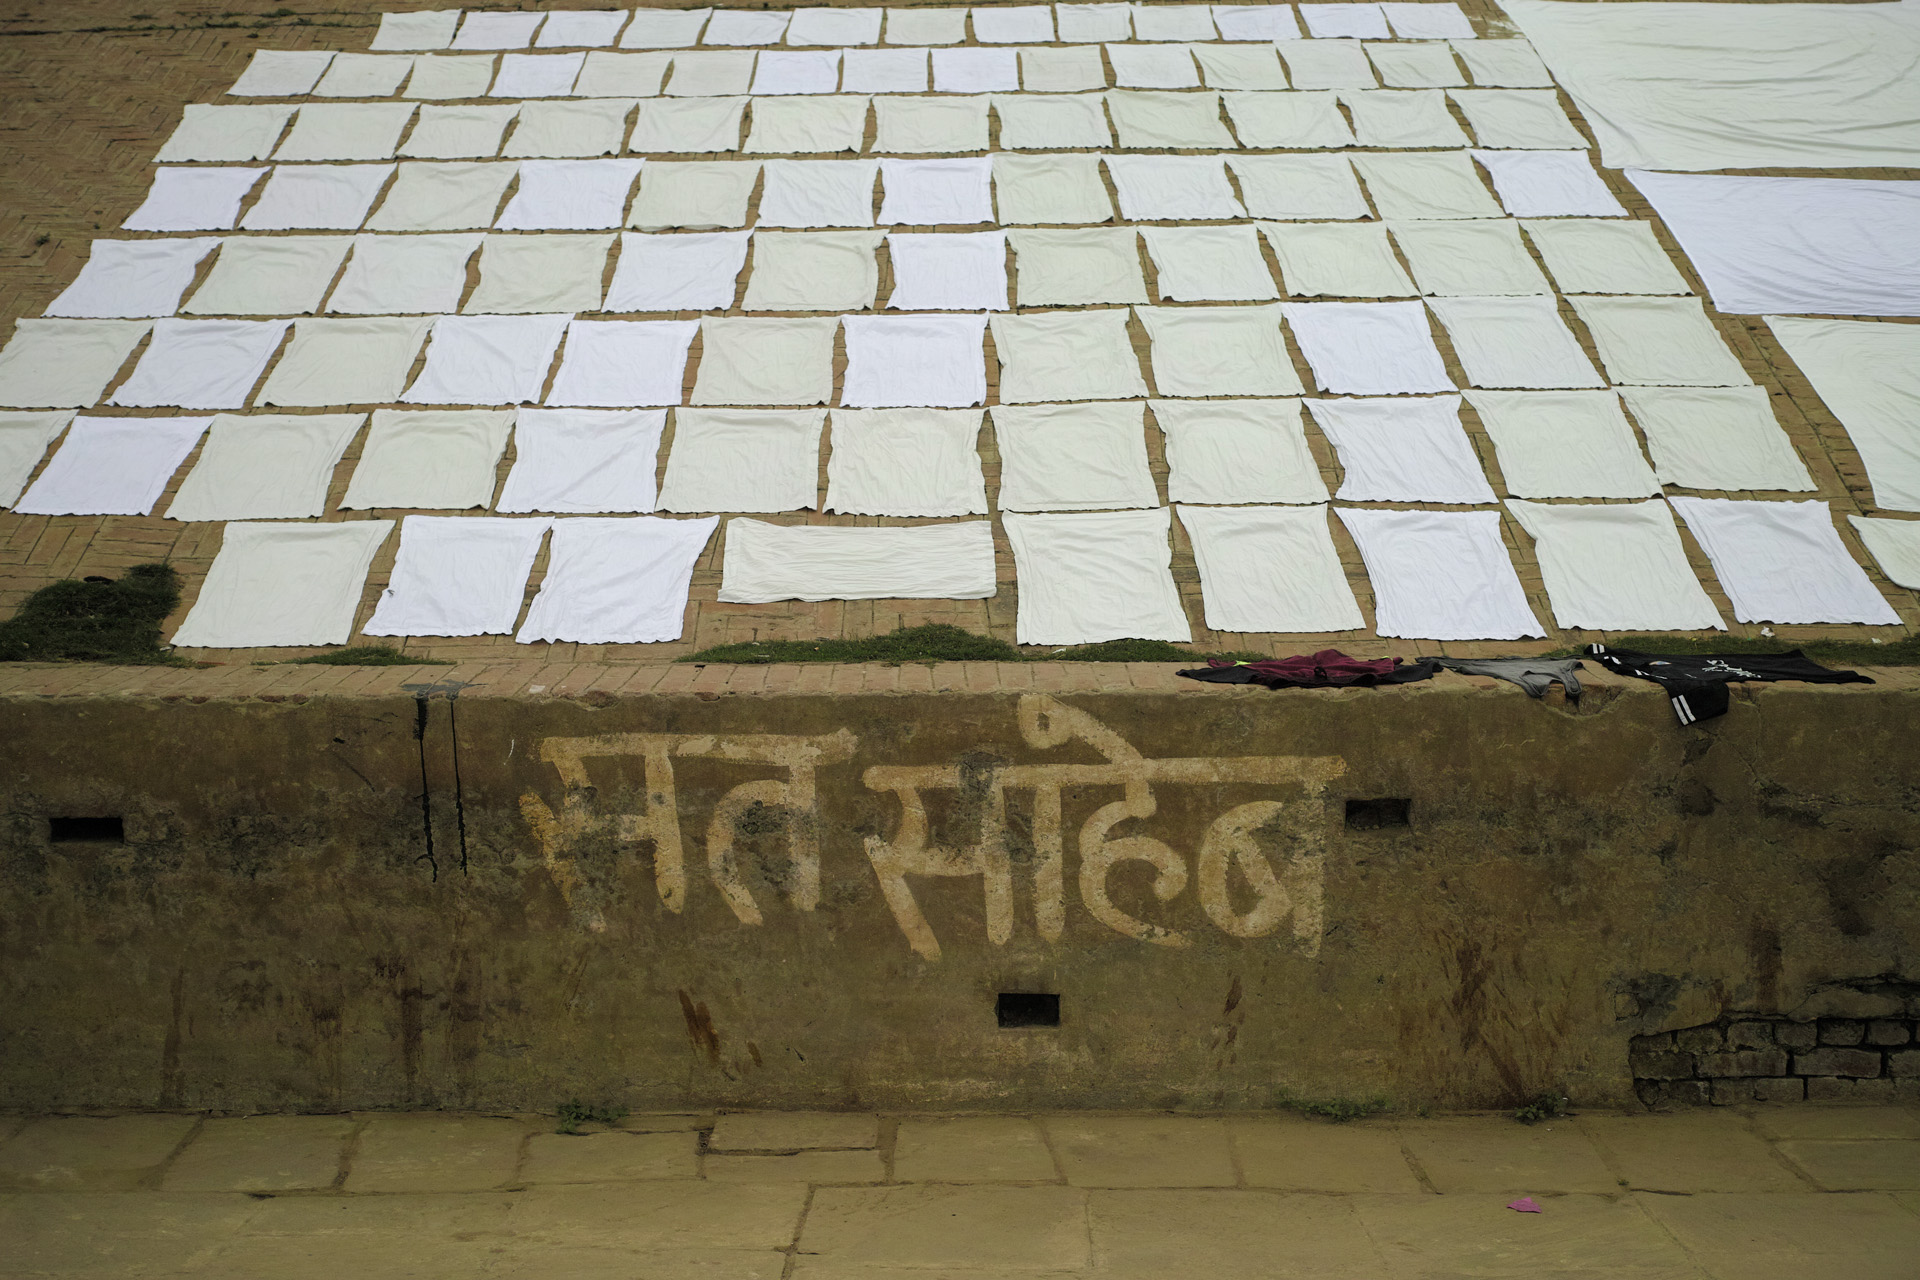 सत साहेब